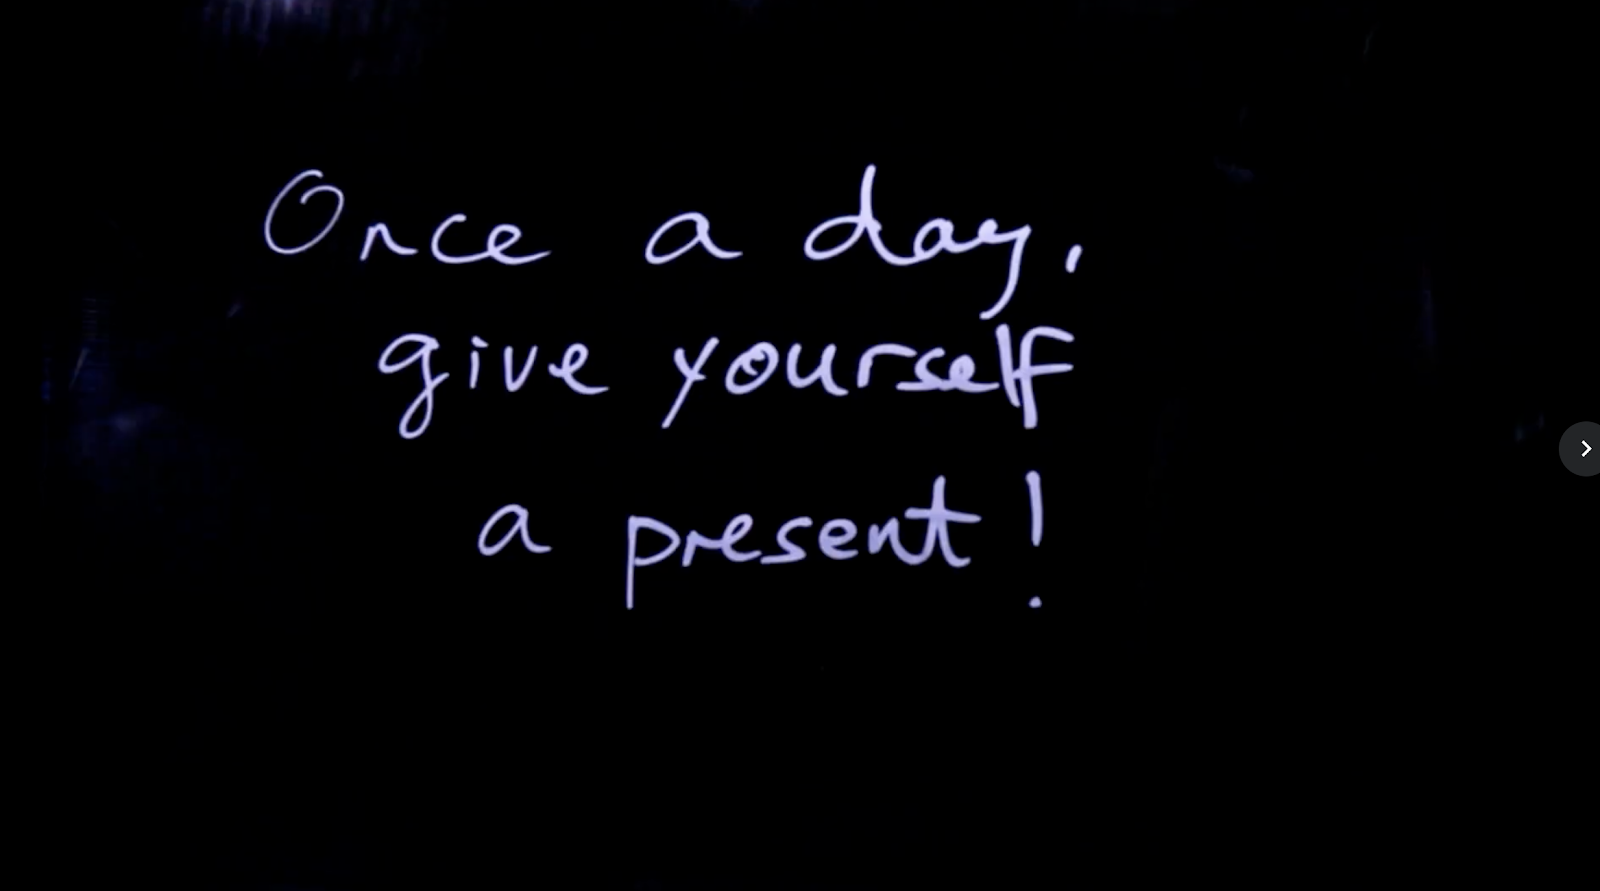 Once a day,
give yourself
a present!